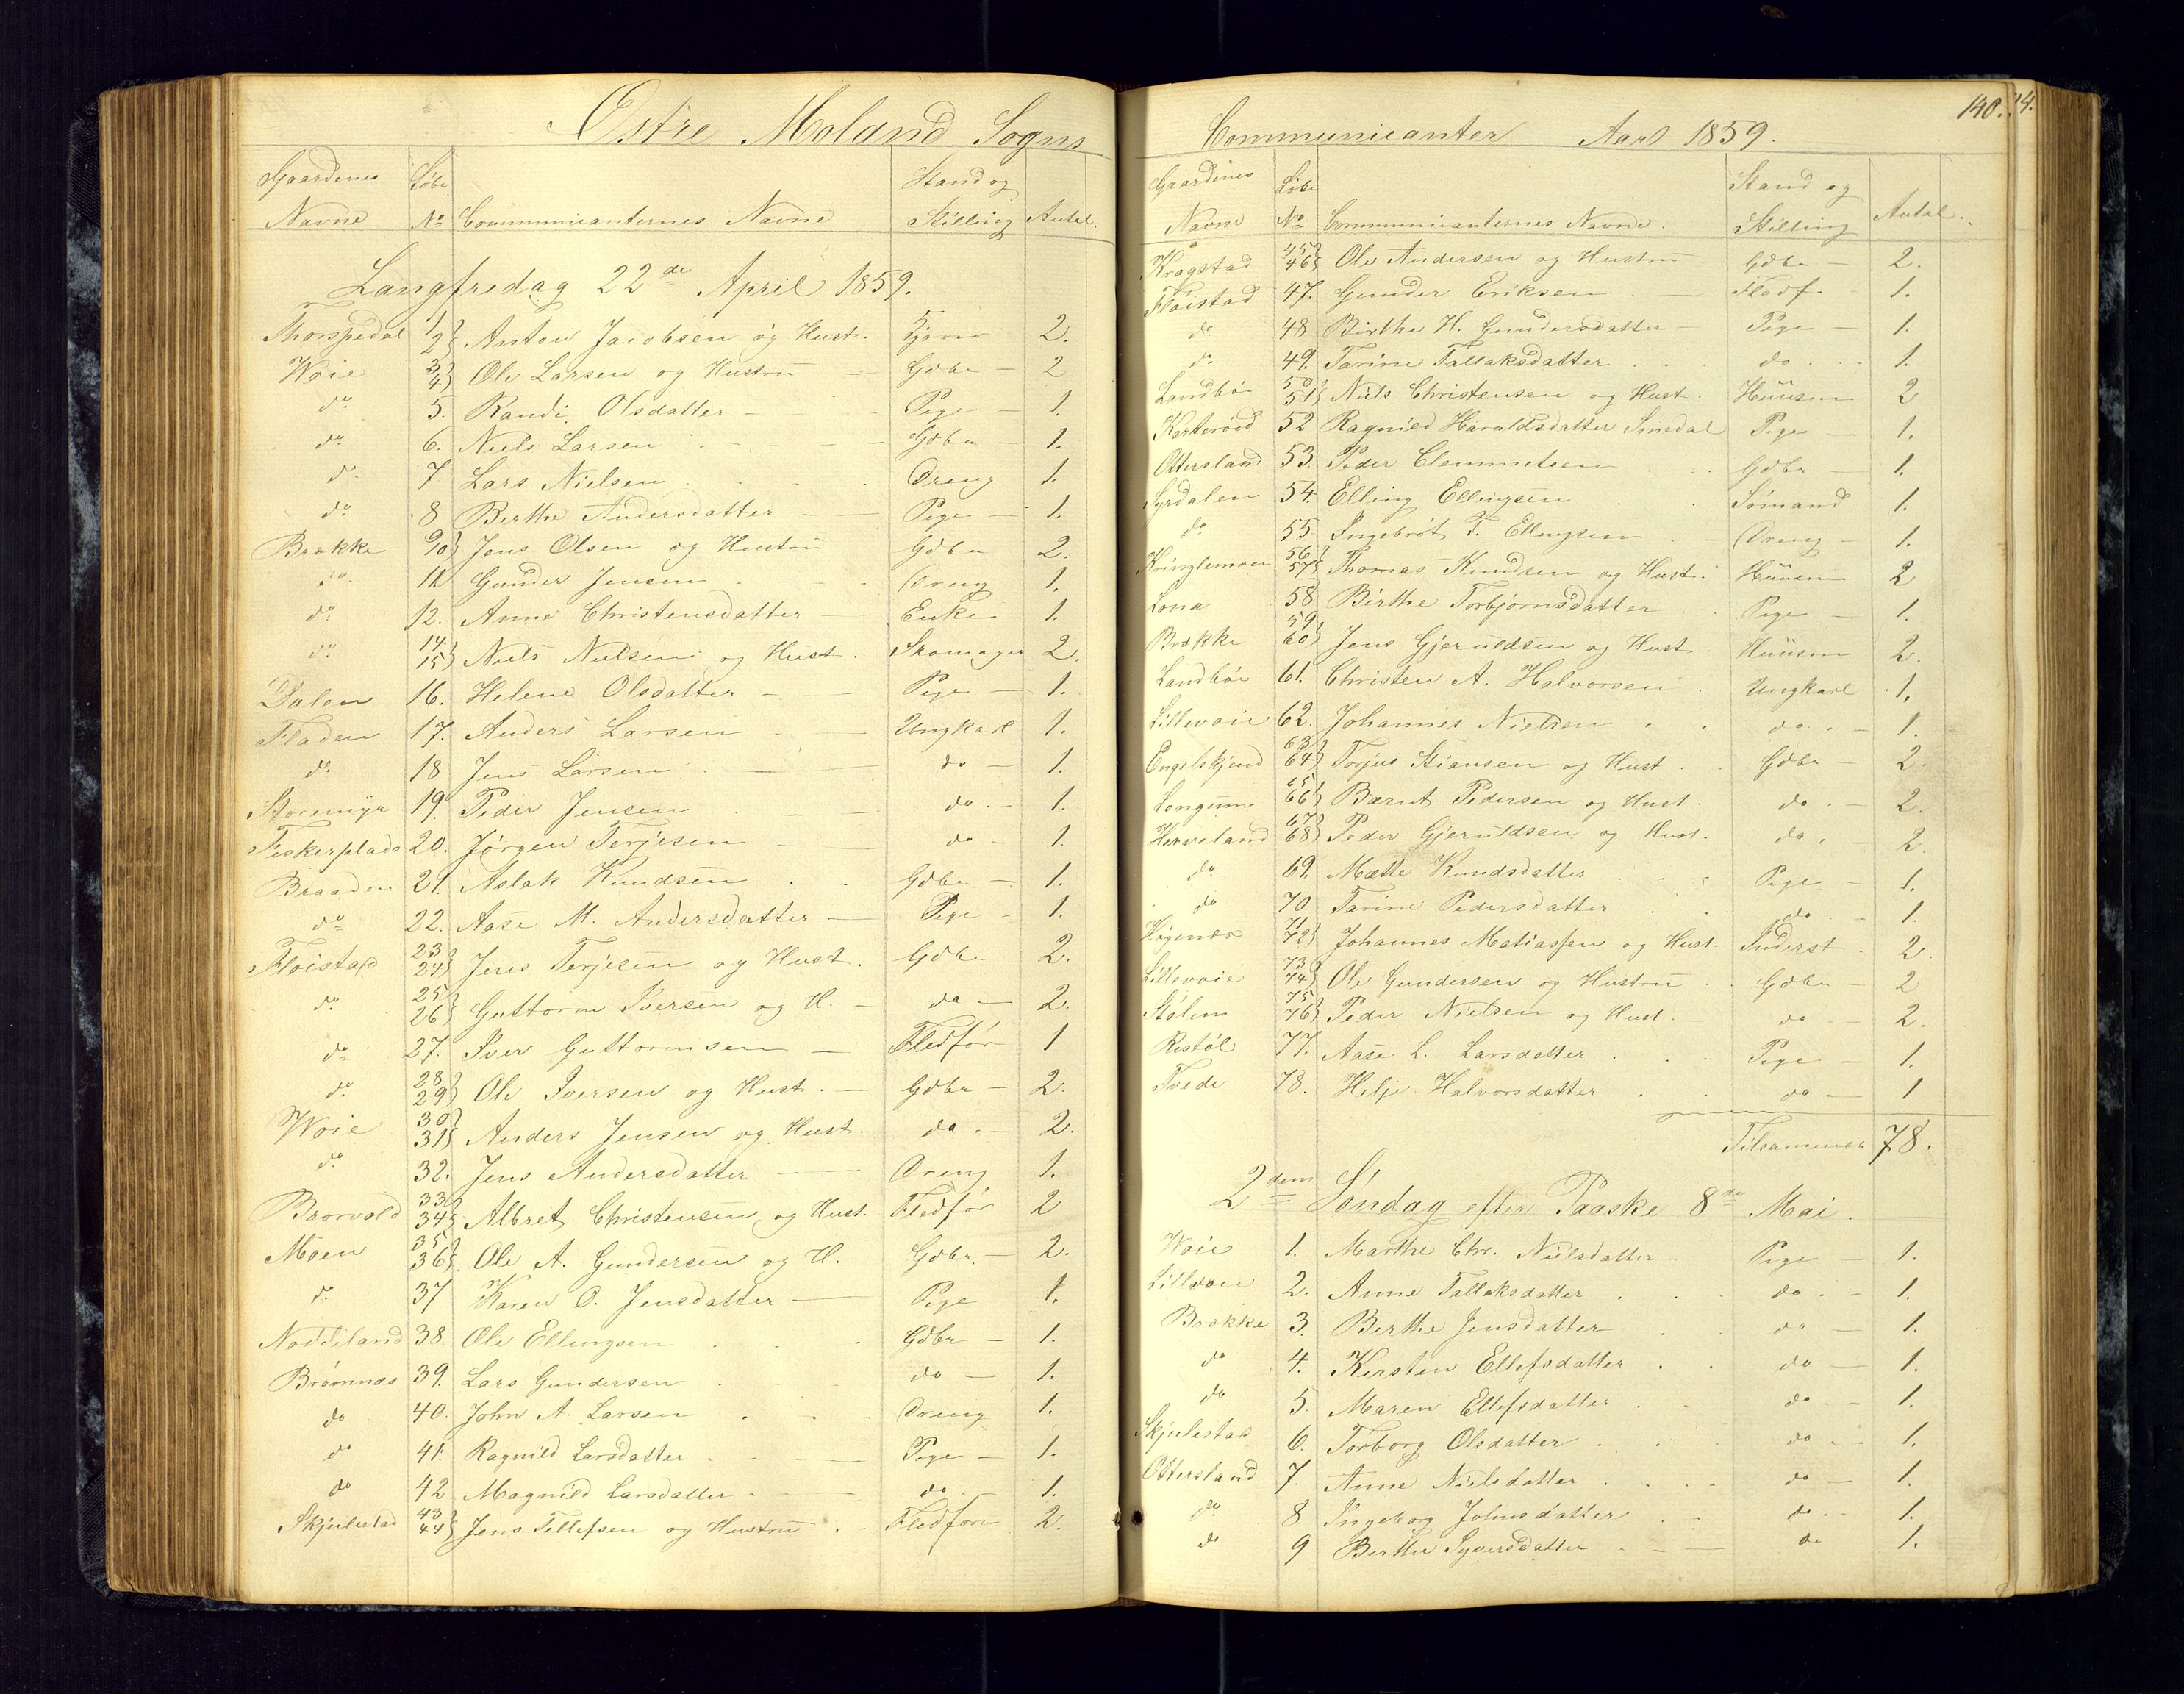 Østre Moland Sogns
Gaardenes Løbe Stand og
Navne No Communicanternes Navne Stilling Antal.
Langfredag 22de April 1859.
Thorspedal 1 2 Anton Jacobsen og Hust. 2.
Woie 3 4 Ole Larsen og Hustru Gdbr 2
do 5. Randi Olsdatter Pige 1.
do 6. Niels Larsen Gdbr 1.
do 7 Lars Nielsen Dreng 1.
do 8 Berthe Andersdatter Pige 1.
Brække 9 10 Jens Olsen og Hustru Gdbr 2.
do 11 Gunder Jensen Dreng 1.
do 12. Anne Christensdatter Enke 1.
do 14. 15 Niels Nielsen og Hust. Skomager 2.
Dalen 16. Helene Olsdatter Pige 1.
Fladen 17. Anders Larsen Ungkarl 1.
do 18 Jens Larsen do 1.
Storemyr 19. Peder Jensen do 1.
Fiskerplads 20. Jörgen Terjesen do 1.
Braaden 21. Aslak Knudsen Gdbr 1.
do 22. Aase M. Andersdatter Pige 1.
Flöistad 23 24 Jens Terjesen og Hust. Gdbr 2.
do 25 26 Guttorm Iversen og H. do 2.
do 27. Iver Guttormsen Fledför 1
do 28 29 Ole Iversen og Hust. Gdbr 2.
Woie 30 31 Anders Jensen og Hust. do 2.
do 32. Jens Andersdatter Dreng 1.
Brorvold 33 34 Albret Christensen og Hust. Fledför 2
Moen 35 36 Ole A. Gundersen og H. Gdbr. 2.
do 37 Karen O. Jensdatter Pige 1.
Noddeland 38. Ole Ellingsen Gdbr 1.
Brömnes 39. Lars Gundersen do 1.
do 40. John A. Larsen Dreng 1.
do 41. Ragnild Larsdatter Pige 1.
do 42 Magnild Larsdatter do 1.
Skjulestad 43 44 Jens Tellefsen og Hustru Fledför 2.
Communicanter Aar 1859. 140. 14.
Gaardenes Løbe Stand og
Navne No Communicanternes Navne. Stilling Antal.
Kragstad 45 46 Ole Andersen og Hustru Gdbr 2.
Flöistad 47. Gunder Eriksen Fledf. 1.
do 48 Birthe H. Gundersdatter Pige 1.
do 49. Tarine Tallaksdatter do 1.
Landböe 50 51 Niels Christensen og Hust. Huusm 2
52 Ragnild Haraldsdatter Smedal Pige 1.
Ottersland 53. Peder Clemmetsen Gdbr 1.
Syrdalen 54. Elling Ellingsen Sömand 1.
do 55 Ingebröt T. Ellingsen Dreng 1.
Kringlemoen 56 57 Thomas Knudsen og Hust. Huusm 2
Lona 58 Birthe Torbjörnsdatter Pige 1.
Brække 59 60 Jens Gjeruldsen og Hust. Huusm 2.
Landböe 61. Christen A. Halvorsen Ungkarl 1.
Lillevoie 62. Johannes Nielsen do. 1.
Engelskjend 63 64 Torjus Stiansen og Hust. Gdbr 2.
Longume 65 66 Bærnt Pedersen og Hust. do. 2.
Herveland 67 68 Peder Gjeruldsen og Hust. do. 2.
do 69. Mætte Knudsdatter Pige 1.
do 70 Tarine Pedersdatter do 1.
Högenes 71 72 Johannes Matiassen og Hust. Inderst. 2.
Lillevoie 73 74 Ole Gundersen og Hustru Gdbr 2
Stölen 75 76 Peder Nielsen og Hust. do 2.
Ristöl 77. Aase L. Larsdatter Pige 1.
Tvede 78. Helje Halvorsdatter do 1
Tilsammen 78.
2den Söndag efter Paaske 8de Mai.
Woie 1. Marthe Chr. Nielsdatter Pige 1.
Lillevoie 2. Anne Tallaksdatter do. 1.
Brække 3. Berthe Jensdatter do 1.
do 4. Kersten Ellefsdatter do 1.
do 5. Maren Ellefsdatter do. 1.
Skjulestad 6. Torborg Olsdatter do 1.
Ottersland 7. Anne Nielsdatter do 1.
do 8 Ingeborg Johnsdatter do 1.
do 9 Berthe Syversdatter do 1.